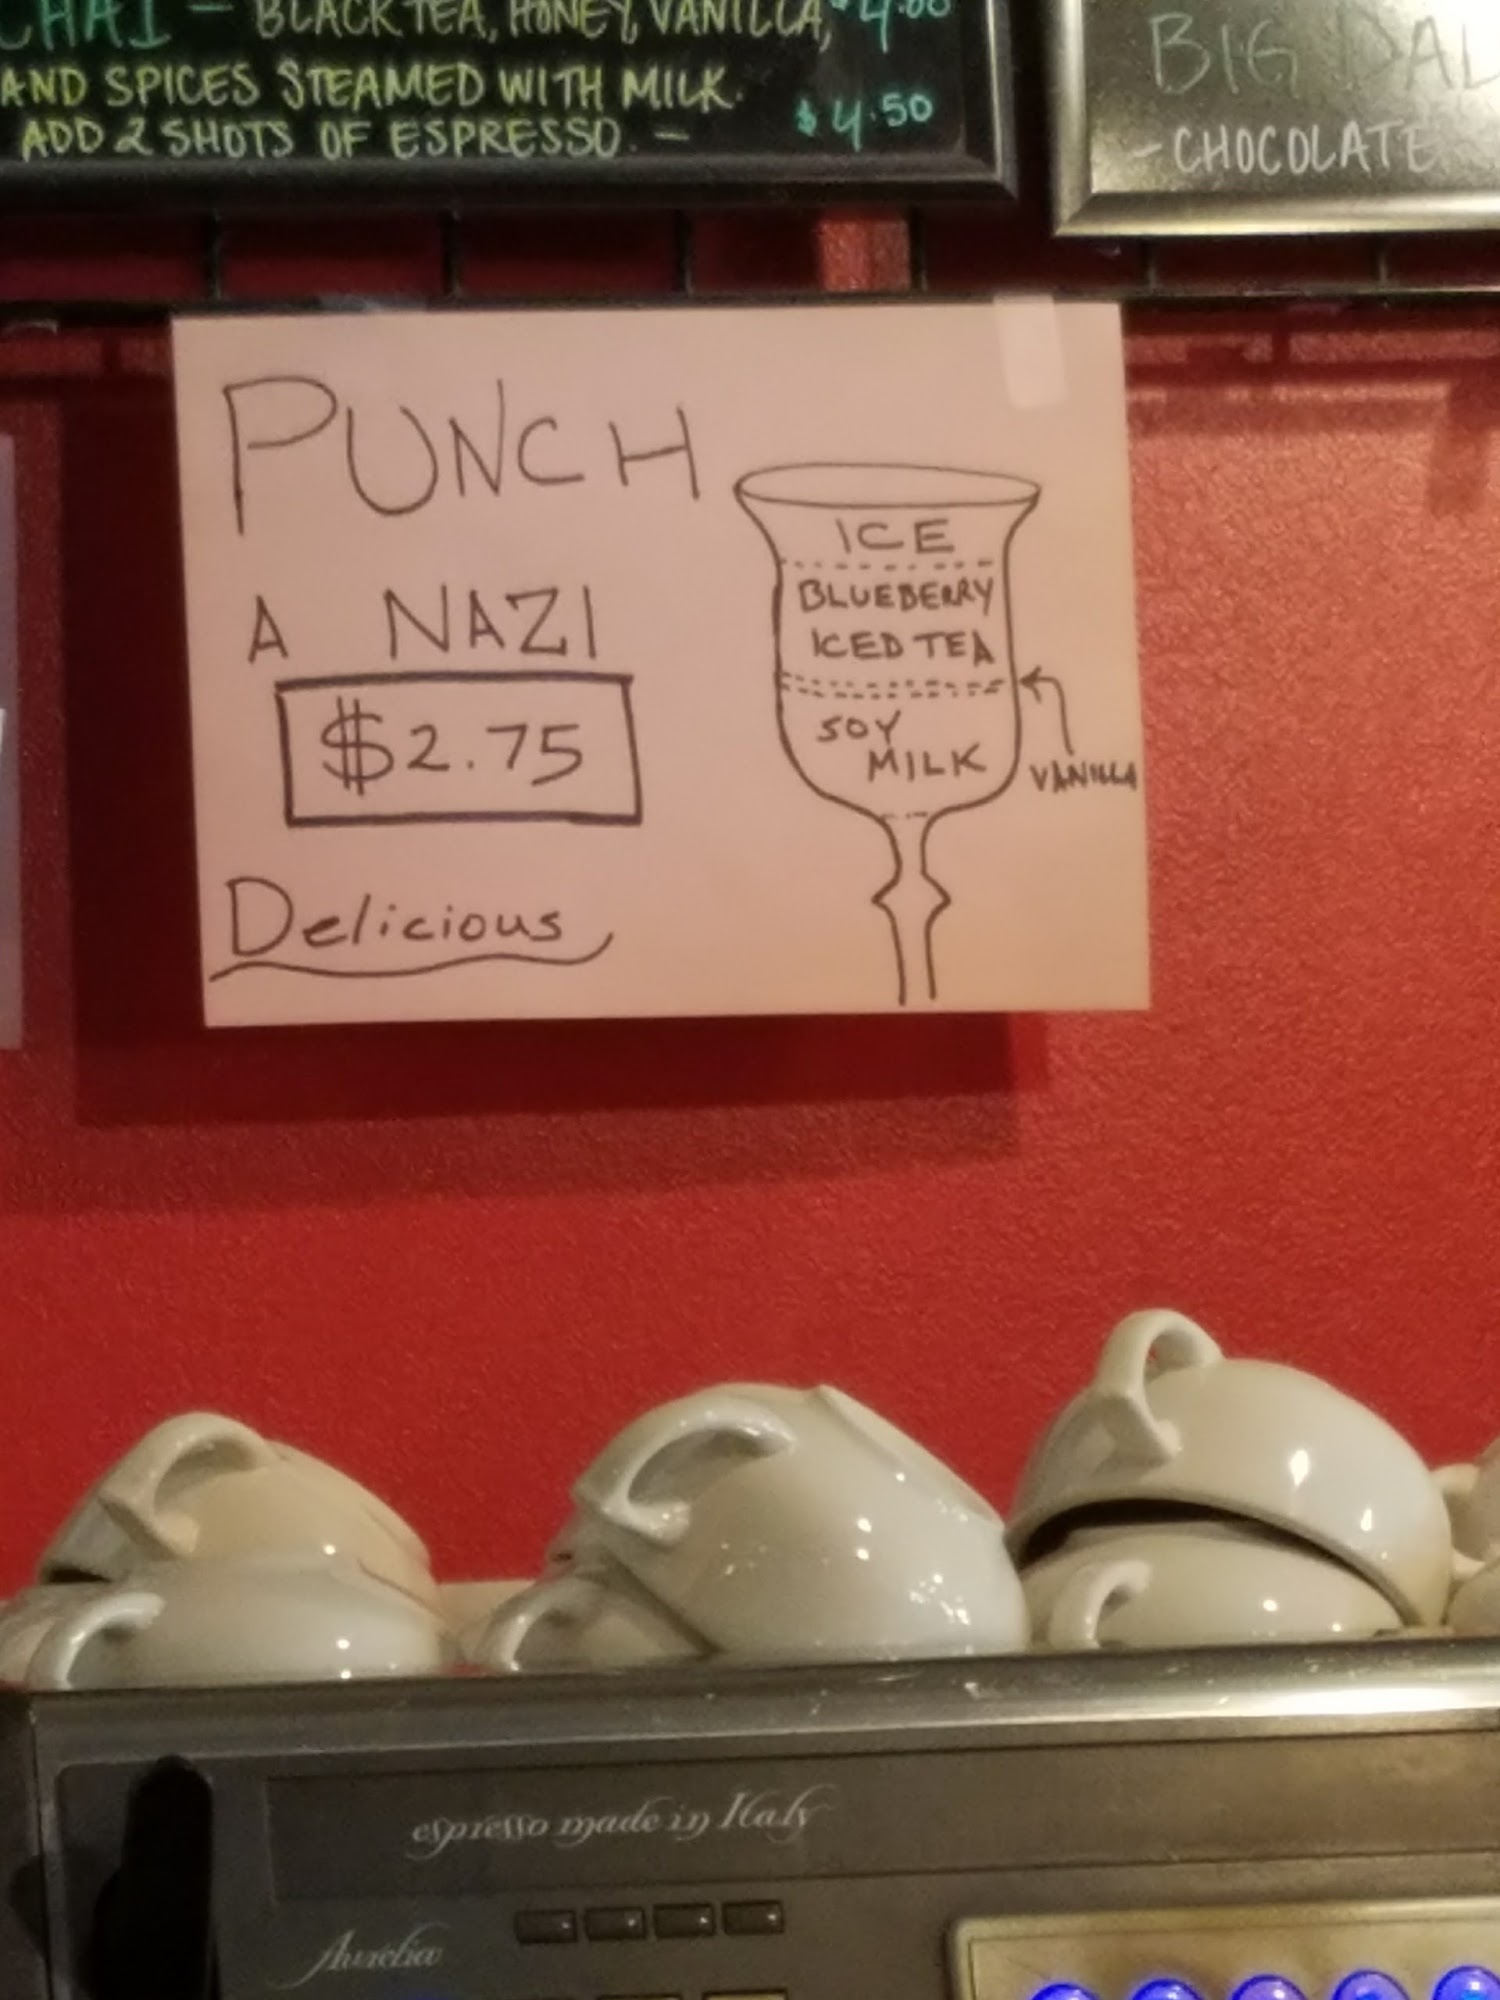 CHAI - BLACK TEA, HONEY, VANILLA, $4.00
AND SPICES STEAMED WITH MILK.
ADD 2 SHOTS OF ESPRESSO. - $4.50
BIG DAL
-CHOCOLATE
PUNCH
A NAZI
$2.75
Delicious
ICE
BLUEBERRY
ICED TEA
SOY
MILK
VANILLA
espresso made in Italy
Aurelia